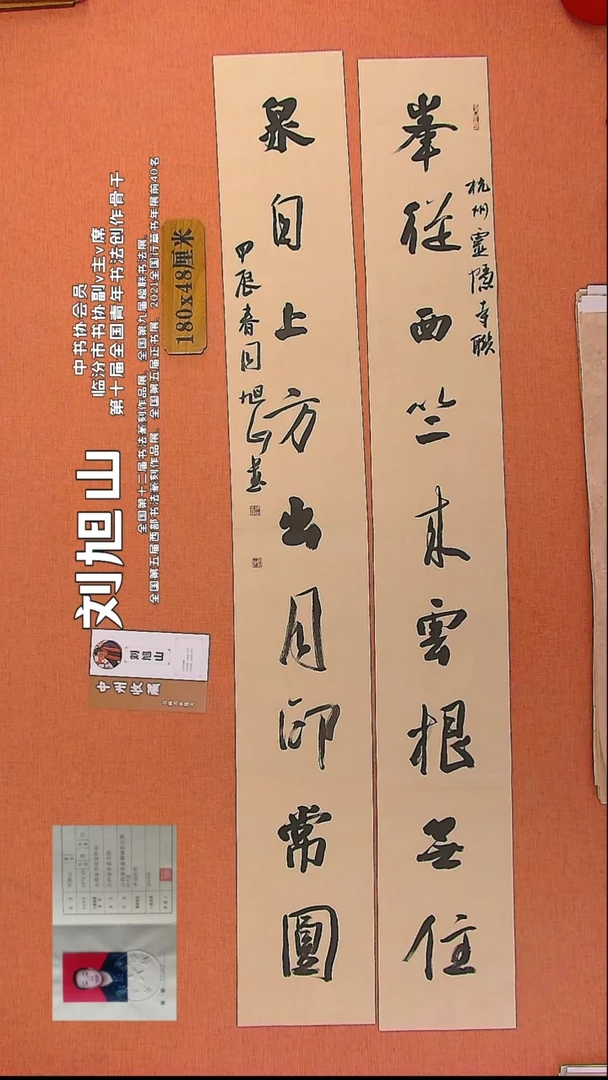 峯從西竺來雲根無住
杭州靈隱寺联
泉自上方出月印常圓
甲辰春月旭山書
180x48厘米
中书协会员
临汾市书协副v主v席
第十届全国青年书法创作骨干
全国第十二届书法篆刻作品展、全国第九届楹联书法展、
全国第五届西部书法篆刻作品展、全国第五届正书展、2021全国行草书年展前40名
刘旭山
刘旭山
中州收藏